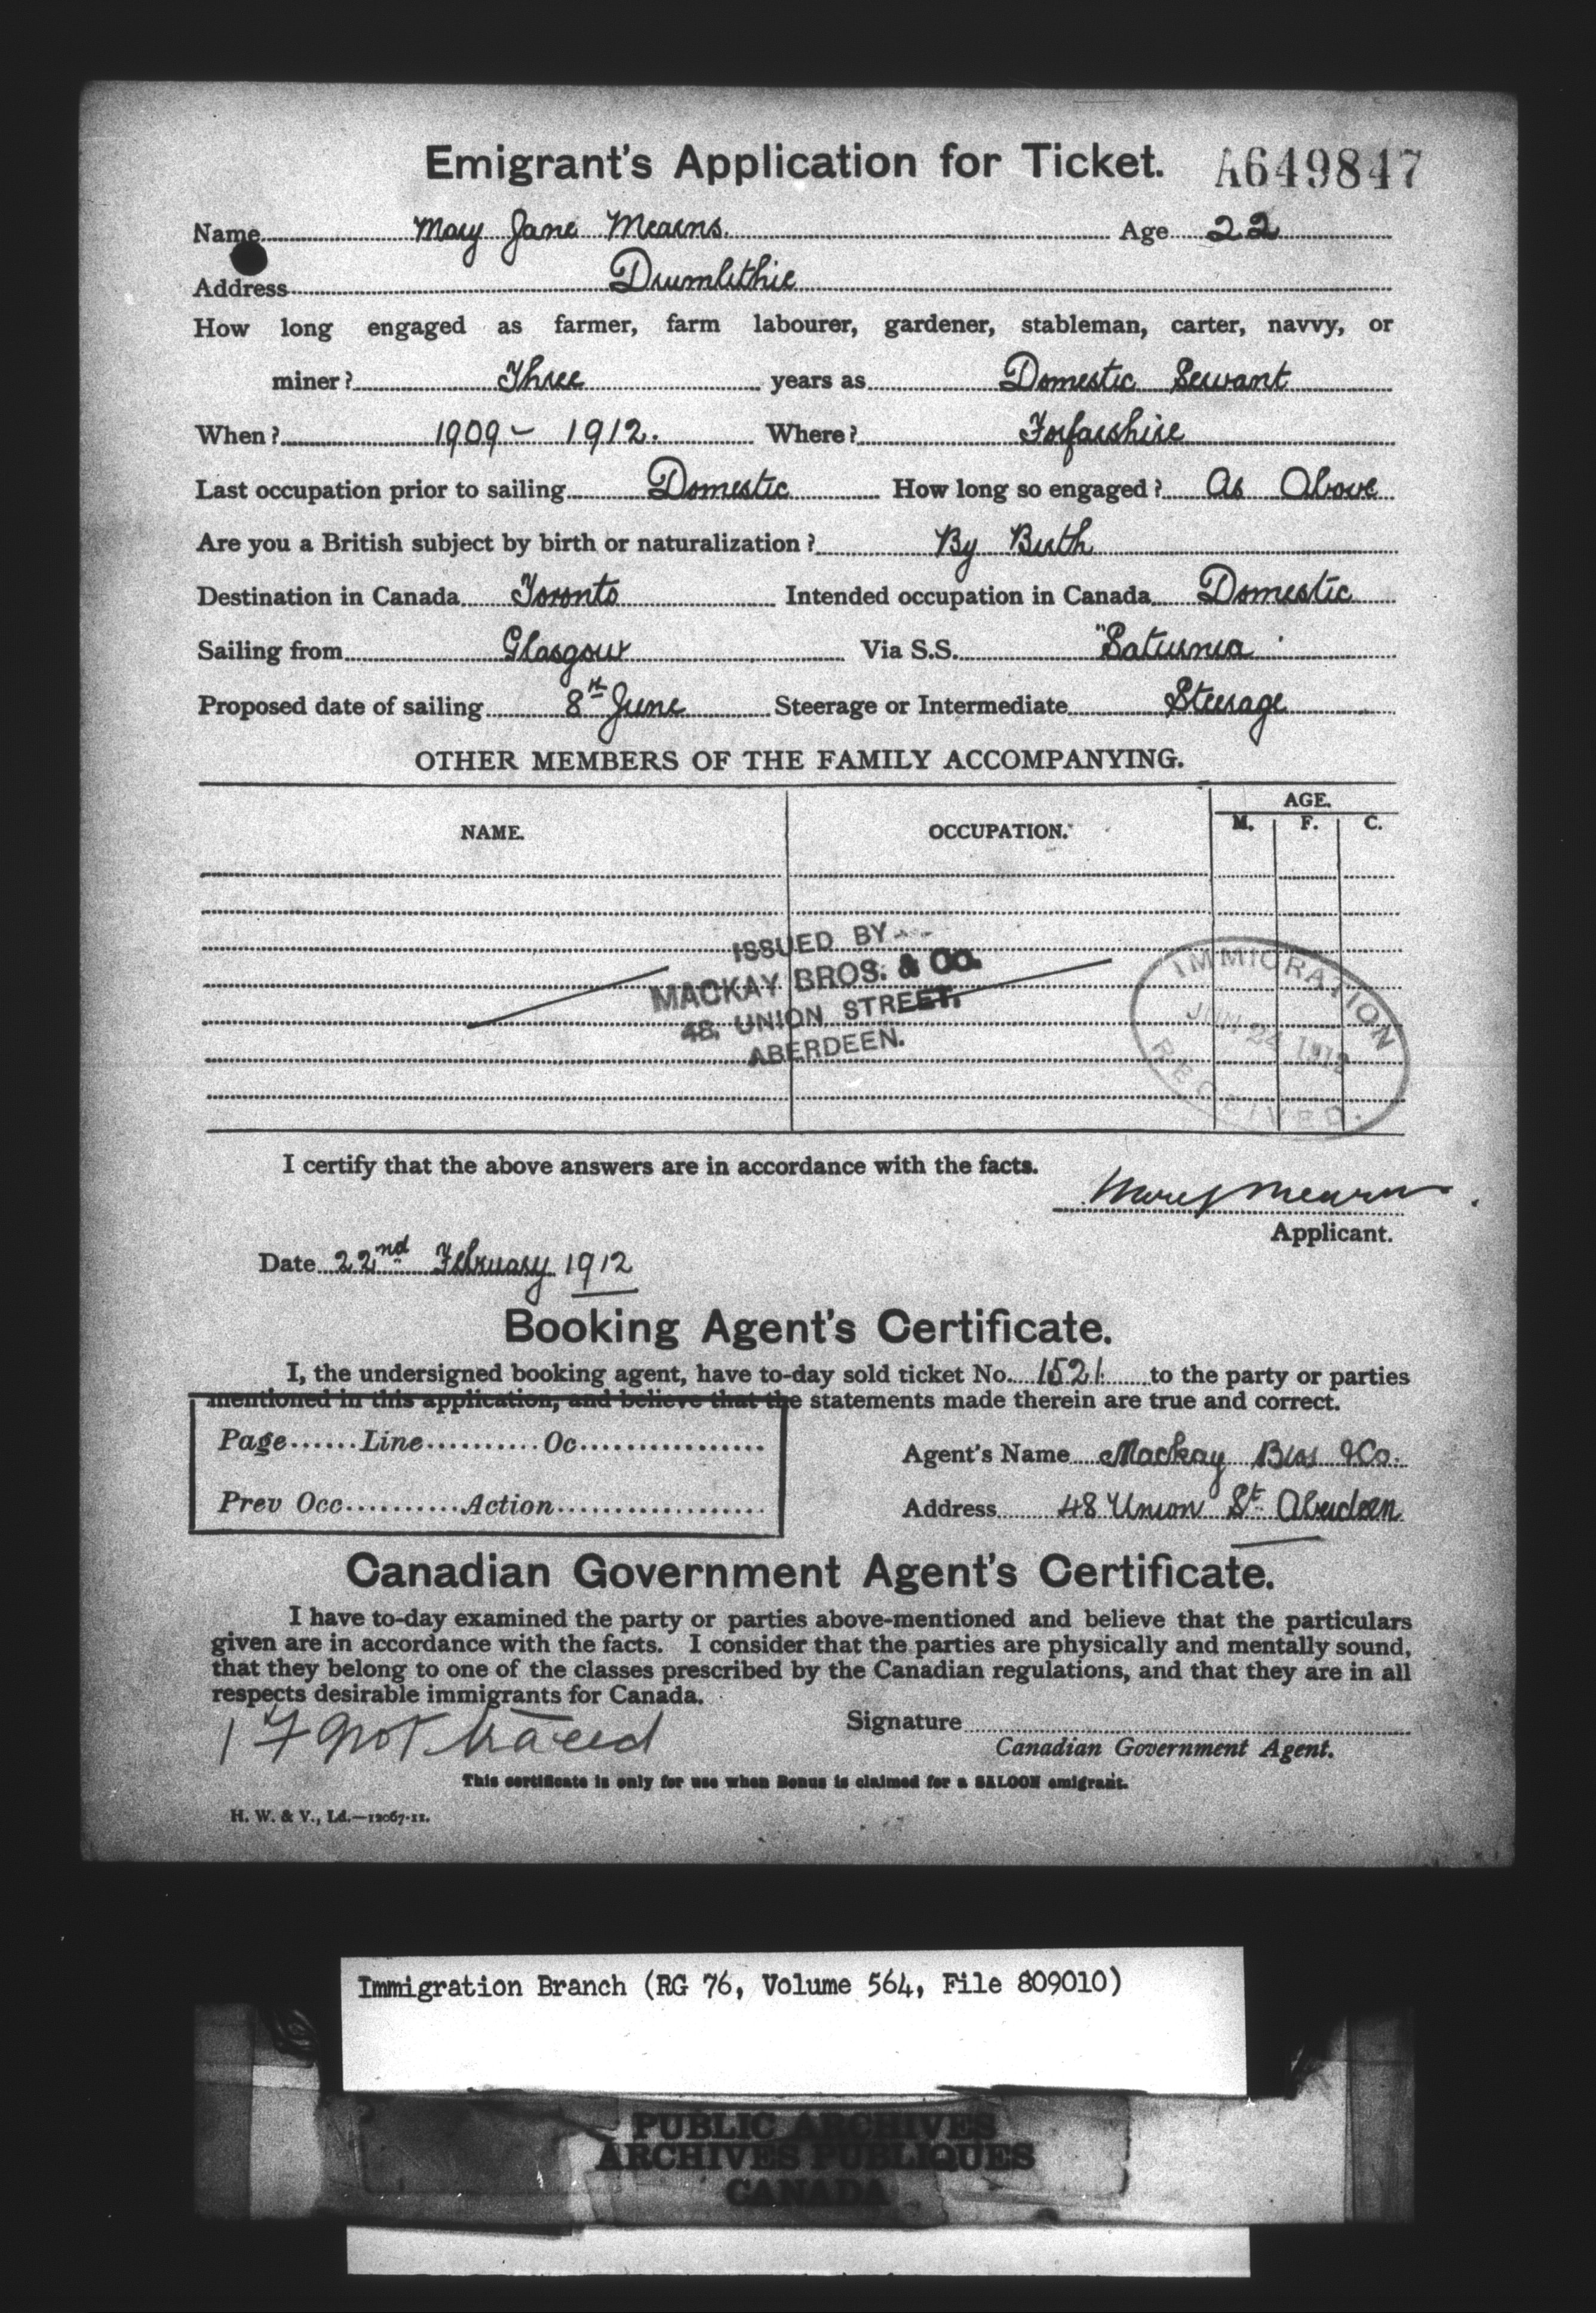 Emigrant's Application for Ticket. A649847
Name Mary Jane Mearns. Age 22
Address Drumlithie
How long engaged as farmer, farm labourer, gardener, stableman, carter, navvy, or
miner? Three years as Domestic Servant
When? 1909 - 1912. Where? Forfarshire
Last occupation prior to sailing Domestic How long so engaged? As Above
Are you a British subject by birth or naturalization? By Birth
Destination in Canada Toronto Intended occupation in Canada Domestic
Sailing from Glasgow Via S.S. "Saturnia"
Proposed date of sailing 8th June Steerage or Intermediate Steerage
OTHER MEMBERS OF THE FAMILY ACCOMPANYING.
NAME. OCCUPATION. AGE.
M. F. C.
ISSUED BY
MACKAY BROS. & CO.
48, UNION STREET,
ABERDEEN.
IMMIGRATION
JUN 24 1912
RECEIVED.
I certify that the above answers are in accordance with the facts.
Mary Mearns
Applicant.
Date 22nd February 1912
Booking Agent's Certificate.
I, the undersigned booking agent, have to-day sold ticket No. 1521 to the party or parties
mentioned in this application, and believe that the statements made therein are true and correct.
Page......Line..........Oc................
Prev Occ..........Action..................
Agent's Name Mackay Bros & Co.
Address 48 Union St. Aberdeen
Canadian Government Agent's Certificate.
I have to-day examined the party or parties above-mentioned and believe that the particulars
given are in accordance with the facts. I consider that the parties are physically and mentally sound,
that they belong to one of the classes prescribed by the Canadian regulations, and that they are in all
respects desirable immigrants for Canada.
1 F not traced
Signature
Canadian Government Agent.
This certificate is only for use when Bonus is claimed for a SALOON emigrant.
H. W. & V., Ld.—12067-11.
Immigration Branch (RG 76, Volume 564, File 809010)
PUBLIC ARCHIVES
ARCHIVES PUBLIQUES
CANADA